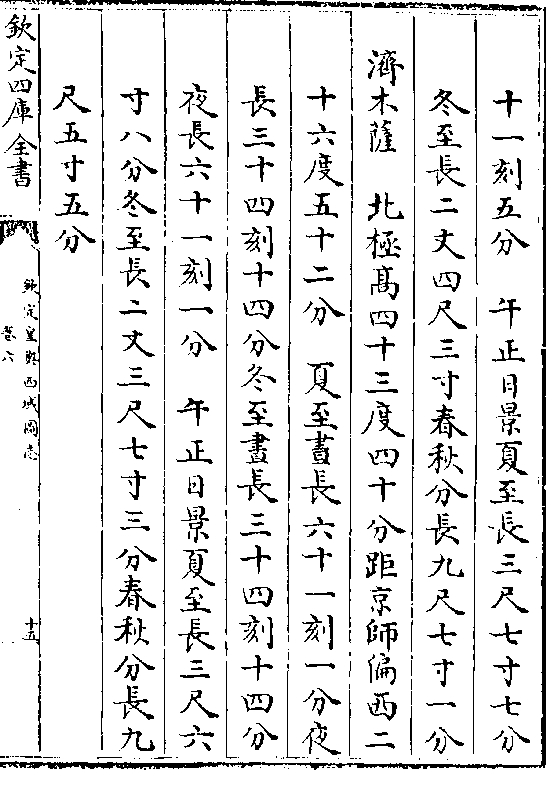 十一刻五分　午正日景夏至長三尺七寸七分
冬至長二丈四尺三寸春秋分長九尺七寸一分
濟木薩　北極髙四十三度四十分距京師偏西二
十六度五十二分　夏至晝長六十一刻一分夜
長三十四刻十四分冬至晝長三十四刻十四分
夜長六十一刻一分　午正日景夏至長三尺六
寸八分冬至長二丈三尺七寸三分春秋分長九
尺五寸五分
欽定四庫全書
欽定皇輿西域圖志
卷六
十五